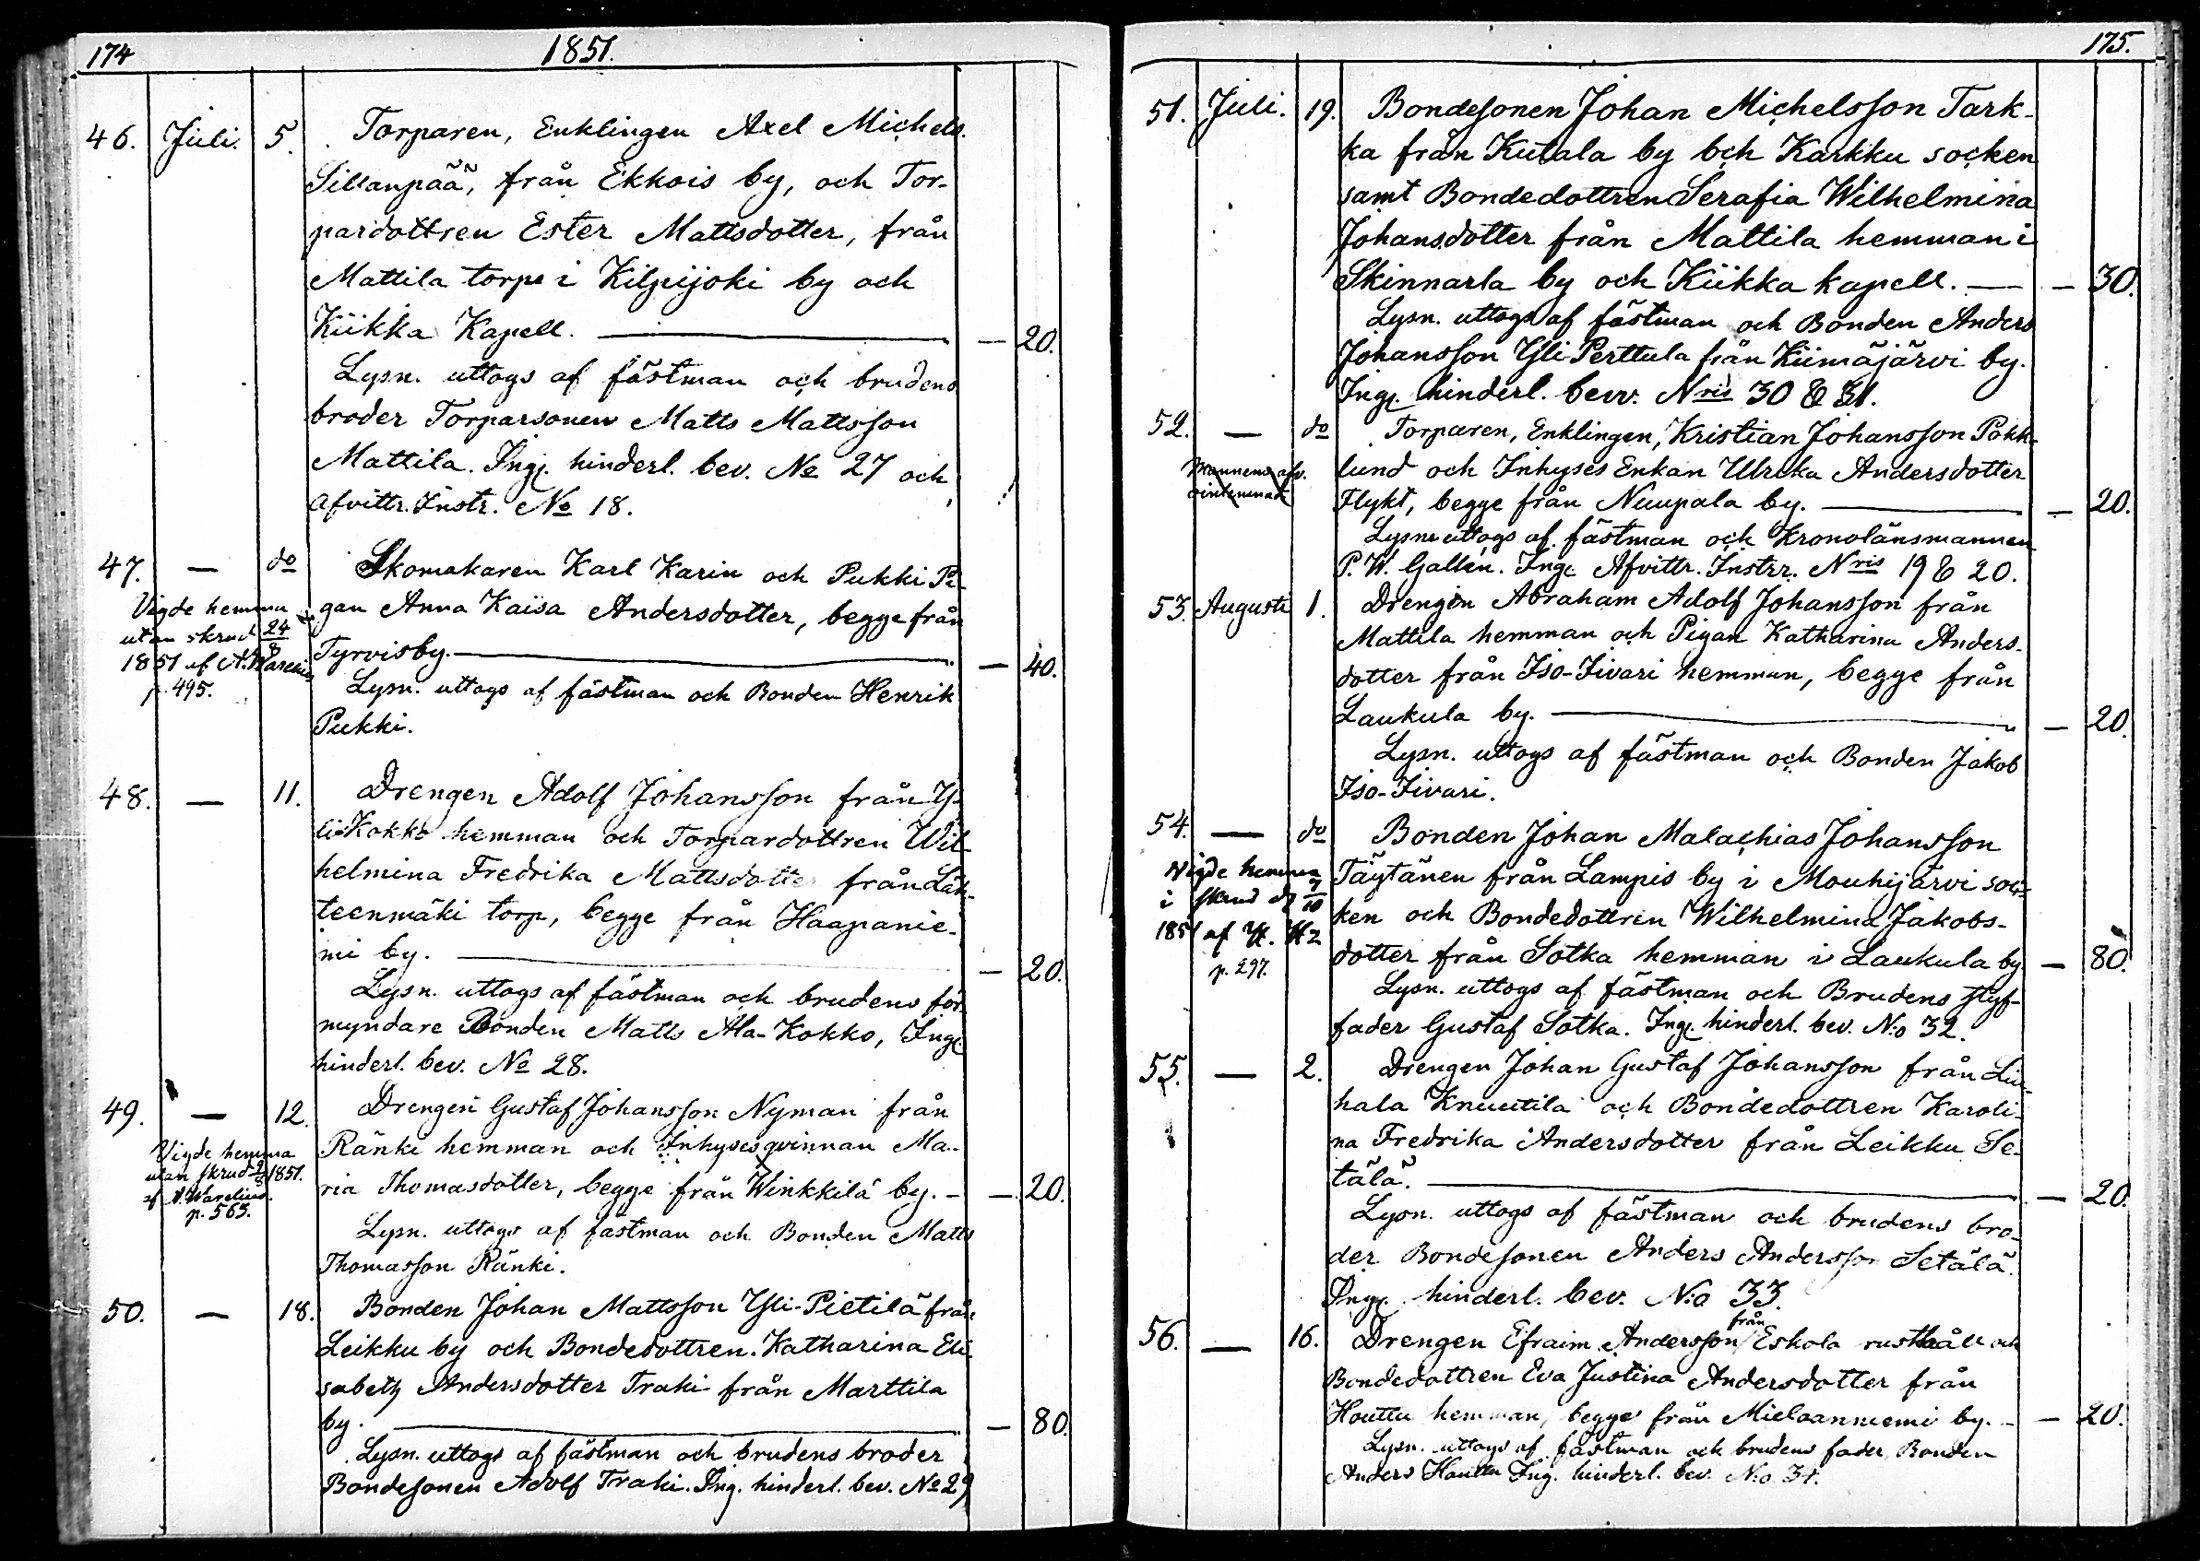 174
1851.
46. Juli. 5. Torparen, Enklingen Axel Michels.
Sillanpää, från Ekkois by, och Tor-
pardottren Ester Mattsdotter, från
Mattila torp i Kilpijoki by och
Kiikka Kapell. — 20.
Lysn. uttogs af fästman och brudens
broder Torparsonen Matts Mattsson
Mattila. Ingl. hinderl. bev. No 27 och
Afvittr. Instr. No 18.
47. — do Skomakaren Karl Karin och Pukki Pi-
Vigde hemma
gan Anna Kaisa Andersdotter, begge från
utan skrud 24/8
Tyrvisby. — 40.
1851 af A. Warelius
p. 495.
Lysn. uttogs af fästman och Bonden Henrik
Pukki.
48. — 11. Drengen Adolf Johansson från Y-
li-Kokko hemman och Torpardottren Wil-
helmina Fredrika Mattsdotter från Läh-
teenmäki torp, begge från Haapanie-
mi by. — 20.
Lysn. uttogs af fästman och brudens för-
myndare Bonden Matts Ala-Kokko, Ingl.
hinderl. bev. No 28.
49. — 12. Drengen Gustaf Johansson Nyman från
Ränki hemman och Inhysesqvinnan Ma-
Vigde hemma
utan skrud 1851.
af A. Warelius.
p. 565.
ria Thomasdotter, begge från Winkkilä by. — 20.
Lysn. uttogs af fästman och Bonden Matts
Thomasson Ränki.
50. — 18. Bonden Johan Mattsson Yli-Pietilä från
Leikku by och Bondedottren Katharina Eli-
sabeth Andersdotter Traki från Marttila
by. — 80.
Lysn. uttogs af fästman och brudens broder
Bondesonen Adolf Traki. Ing. hinderl. bev. No 29
175.
51. Juli. 19. Bondesonen Johan Michelsson Tark-
ka från Kutala by och Karkku socken
samt Bondedottren Serafia Wilhelmina
Johansdotter från Mattila hemman i
Skinnarla by och Kiikka kapell. — 30.
Lysn. uttogs af fästman och Bonden Anders
Johansson Yli Perttula från Kiimäjärvi by.
Ingl. hinderl. bevv. Nris 30 & 31.
52. — do Torparen, Enklingen, Kristian Johansson Pokk-
lund och Inhyses Enkan Ulrika Andersdotter
Flykt, begge från Nuupala by. — 20.
Lysn. uttogs af fästman och Kronolänsmannen
P. W. Gallén. Ingl. Afvittr. Instrr. Nris 19 & 20.
53. Augusti 1. Drengen Abraham Adolf Johansson från
Mattila hemman och Pigan Katharina Anders-
dotter från Iso-Iivari hemman, begge från
Laukula by. — 20.
Lysn. uttogs af fästman och Bonden Jakob
Iso-Iivari.
54. — do Bonden Johan Malachias Johansson
Vigde hemma
Täytänen från Lampis by i Mouhijärvi soc-
i skrud d 7/10
ken och Bondedottren Wilhelmina Jakobs-
1851 af H. Hz
p. 297.
dotter från Sotka hemman i Laukula by — 80.
Lysn. uttogs af fästman och Brudens styf-
fader Gustaf Sotka. Ingl. hinderl. bev. N:o 32.
55. — 2. Drengen Johan Gustaf Johansson från Liu-
hala Knuutila och Bondedottren Karoli-
na Fredrika Andersdotter från Leikku Se-
tälä. — 20.
Lysn. uttogs af fästman och brudens bro-
der Bondesonen Anders Andersson Setälä.
Ingl. hinderl. bev. N:o 33.
56. — 16. Drengen Efraim Andersson från Eskola rusthåll och
Bondedottren Eva Justina Andersdotter från
Houttu hemman, begge från Mielaanniemi by. — 20.
Lysn. uttogs af fästman och brudens fader Bonden
Anders Houttu Ing. hinderl. bev. N:o 34.